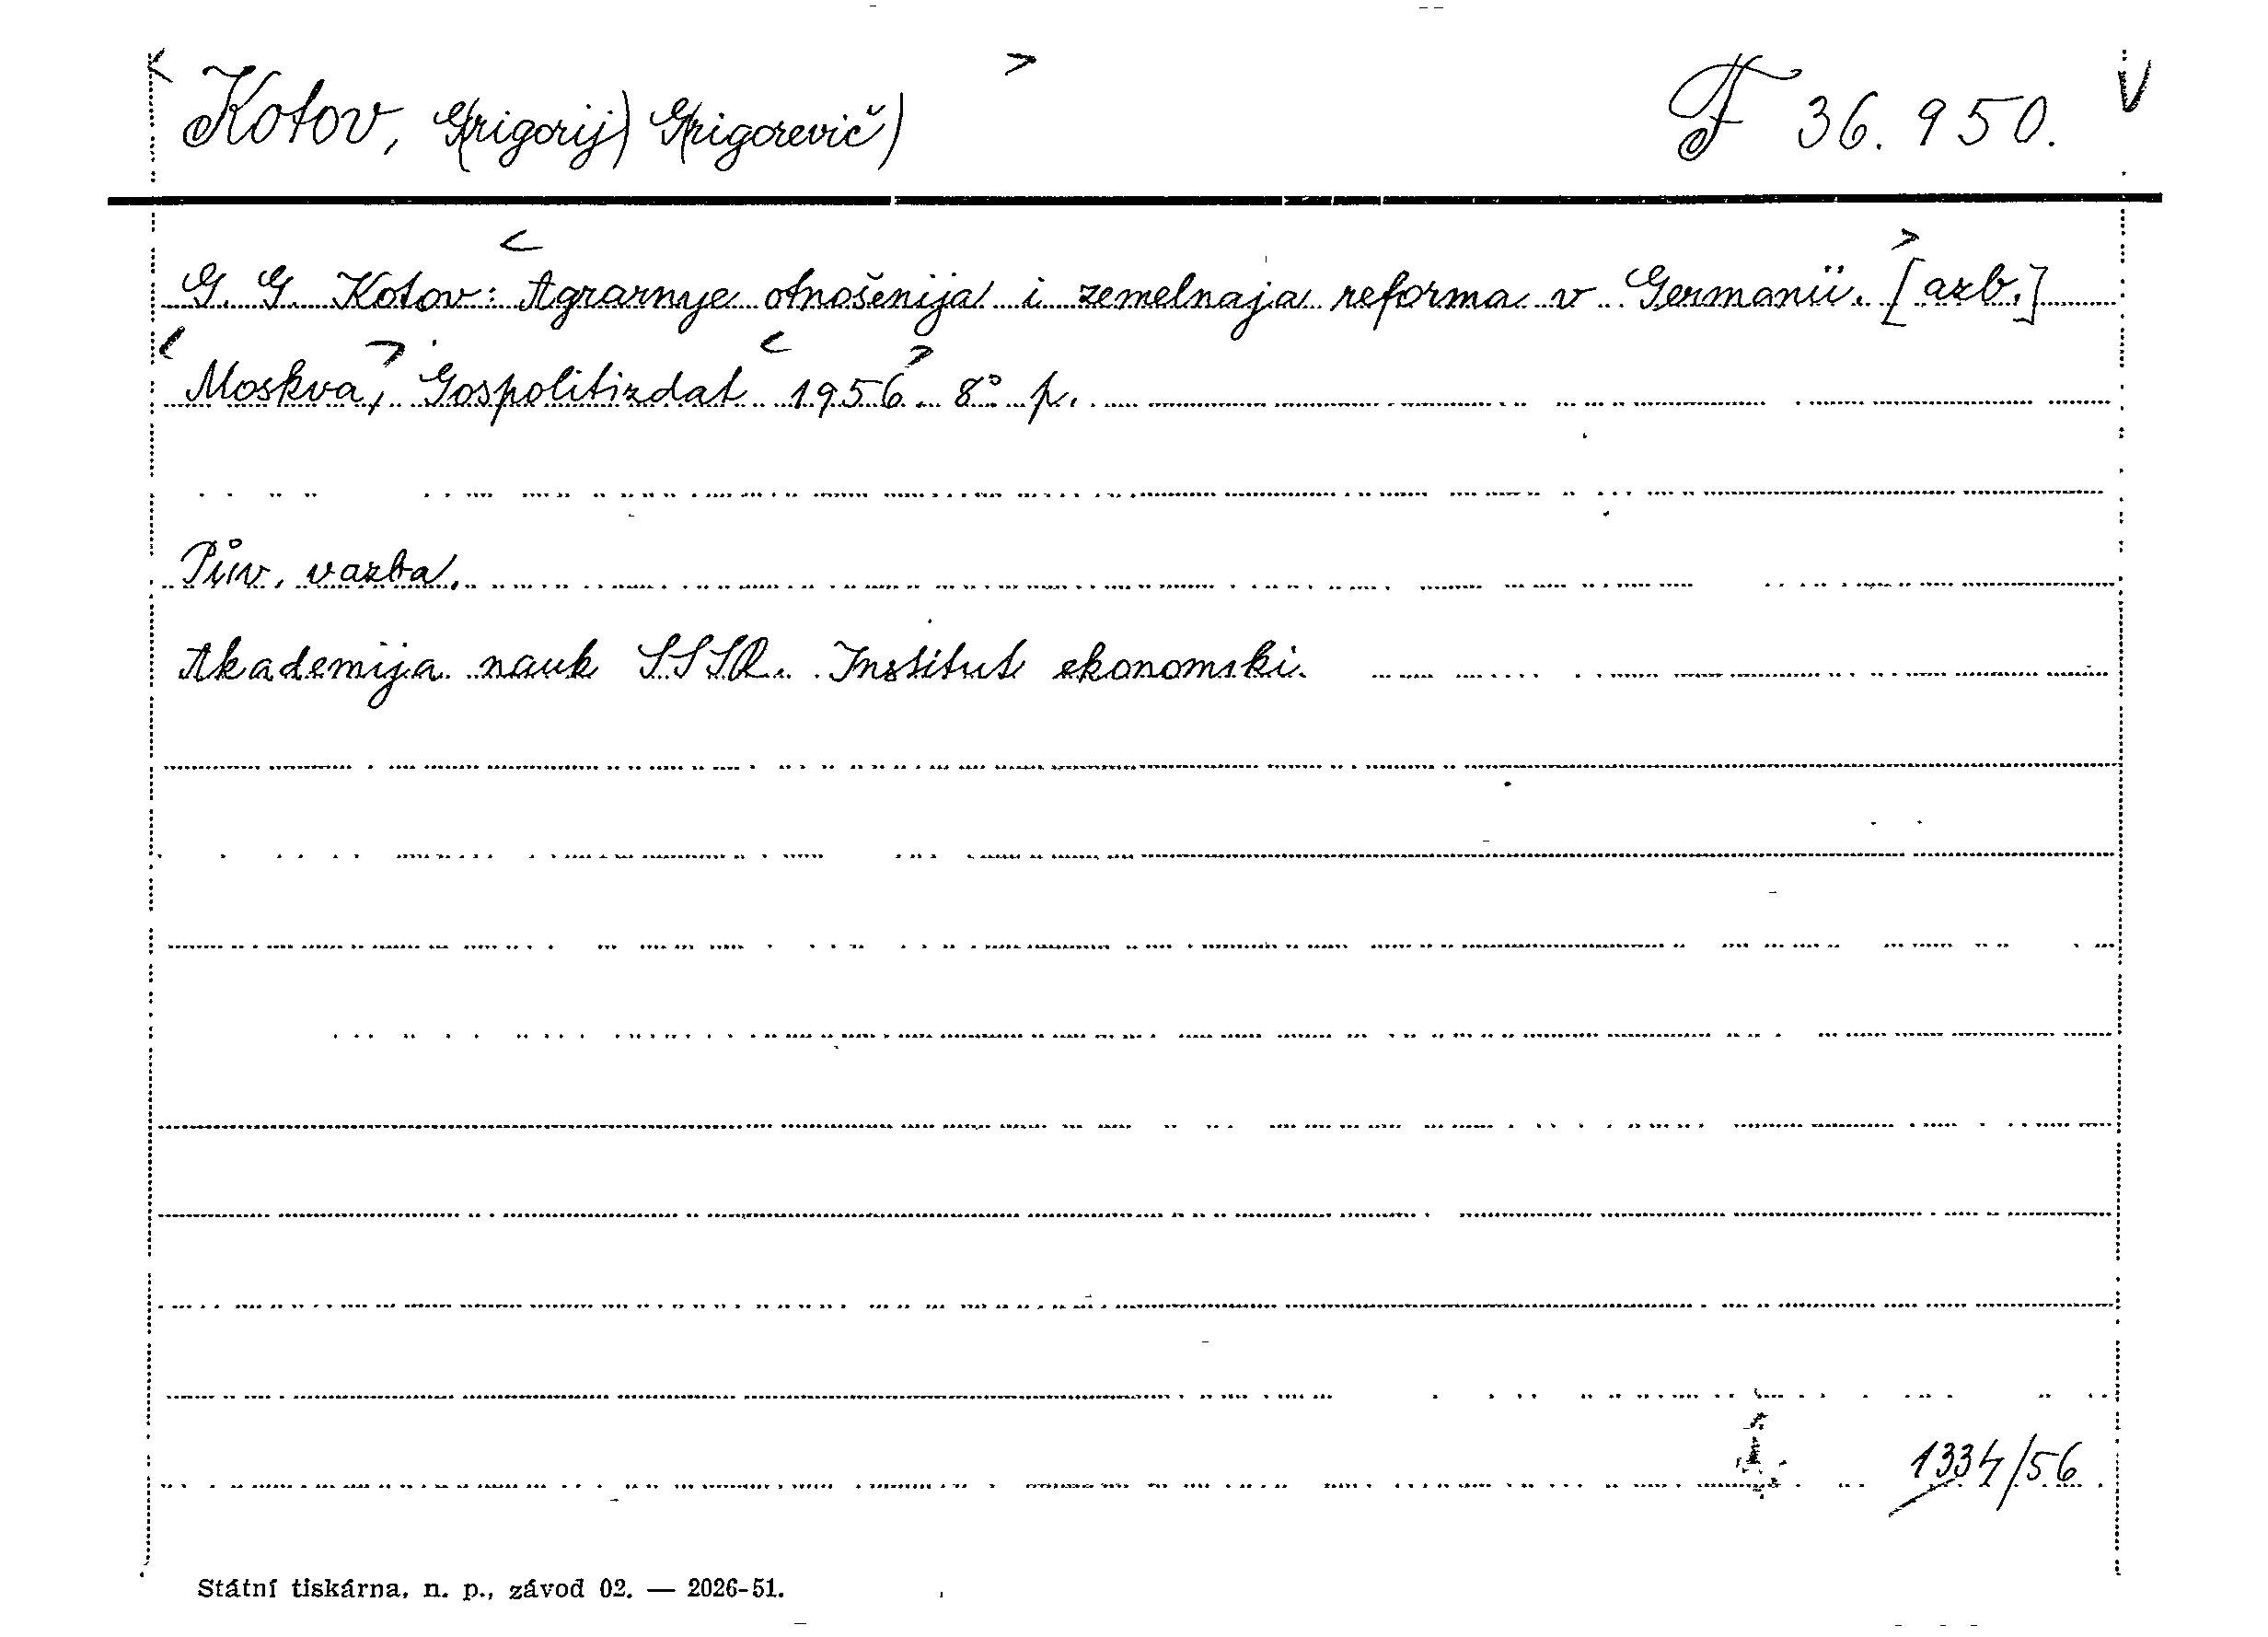 Kotov, G(rigorij) G(rigorevič) F 36.950.
G. G. Kotov: Agrarnye otnošenija i zemelnaja reforma v Germanii. [azb.]
Moskva, Gospolitizdat 1956 8° p.
Pův. vazba.
Akademija nauk SSSR. Institut ekonomiki.
1334/56
Státní tiskárna, n. p., závod 02. — 2026-51.